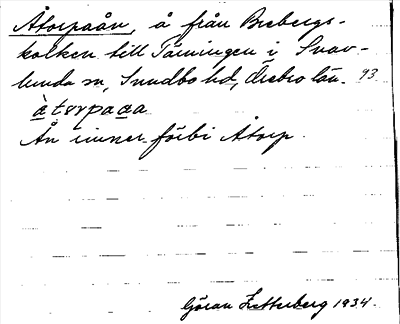 Åtorpaån, å från Brebergs-
kolken till Tämningen i Svav-
lunda sn, Sundbo hd, Örebro län. 93
àtorpaaa
Ån rinner förbi Åtorp.
Göran Zetterberg 1934.